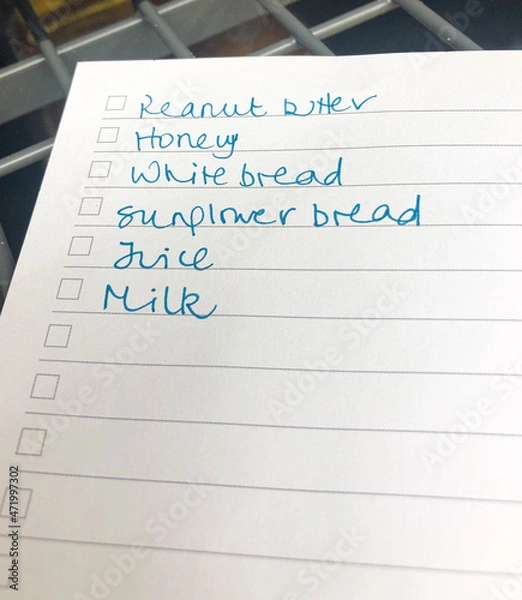 Peanut butter
Honey
White bread
sunflower bread
Juice
Milk
Adobe Stock | #471997302